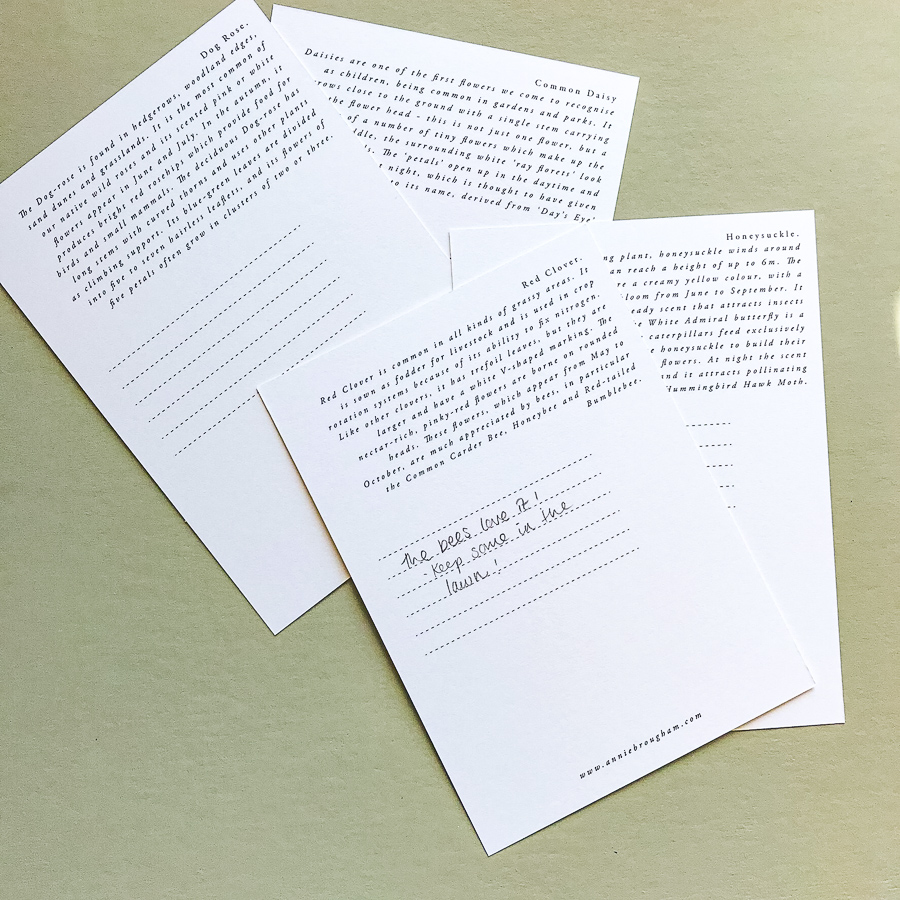 Dog Rose.
The Dog-rose is found in hedgerows, woodland edges,
sand dunes and grasslands. It is the most common of
our native wild roses and its scented pink or white
flowers appear in June and July. In the autumn, it
produces bright red rosehips which provide food for
birds and small mammals. The deciduous Dog-rose has
long stems with curved thorns and uses other plants
as climbing support. Its blue-green leaves are divided
into five to seven hairless leaflets, and its flowers of
five petals often grow in clusters of two or three.
Common Daisy
Daisies are one of the first flowers we come to recognise
as children, being common in gardens and parks. It
rows close to the ground with a single stem carrying
the flower head - this is not just one flower, but a
of a number of tiny flowers which make up the
ddle, the surrounding white 'ray florets' look
s. The 'petals' open up in the daytime and
t night, which is thought to have given
to its name, derived from 'Day's Eye'
Honeysuckle.
ng plant, honeysuckle winds around
an reach a height of up to 6m. The
re a creamy yellow colour, with a
loom from June to September. It
eady scent that attracts insects
e White Admiral butterfly is a
caterpillars feed exclusively
e honeysuckle to build their
flowers. At night the scent
nd it attracts pollinating
Hummingbird Hawk Moth.
Red Clover.
Red Clover is common in all kinds of grassy areas. It
is sown as fodder for livestock and is used in crop
rotation systems because of its ability to fix nitrogen.
Like other clovers, it has trefoil leaves, but they are
larger and have a white V-shaped marking. The
nectar-rich, pinky-red flowers are borne on rounded
heads. These flowers, which appear from May to
October, are much appreciated by bees, in particular
the Common Carder Bee, Honeybee and Red-tailed
Bumblebee.
The bees love it!
Keep some in the
lawn!
www.anniebrougham.com